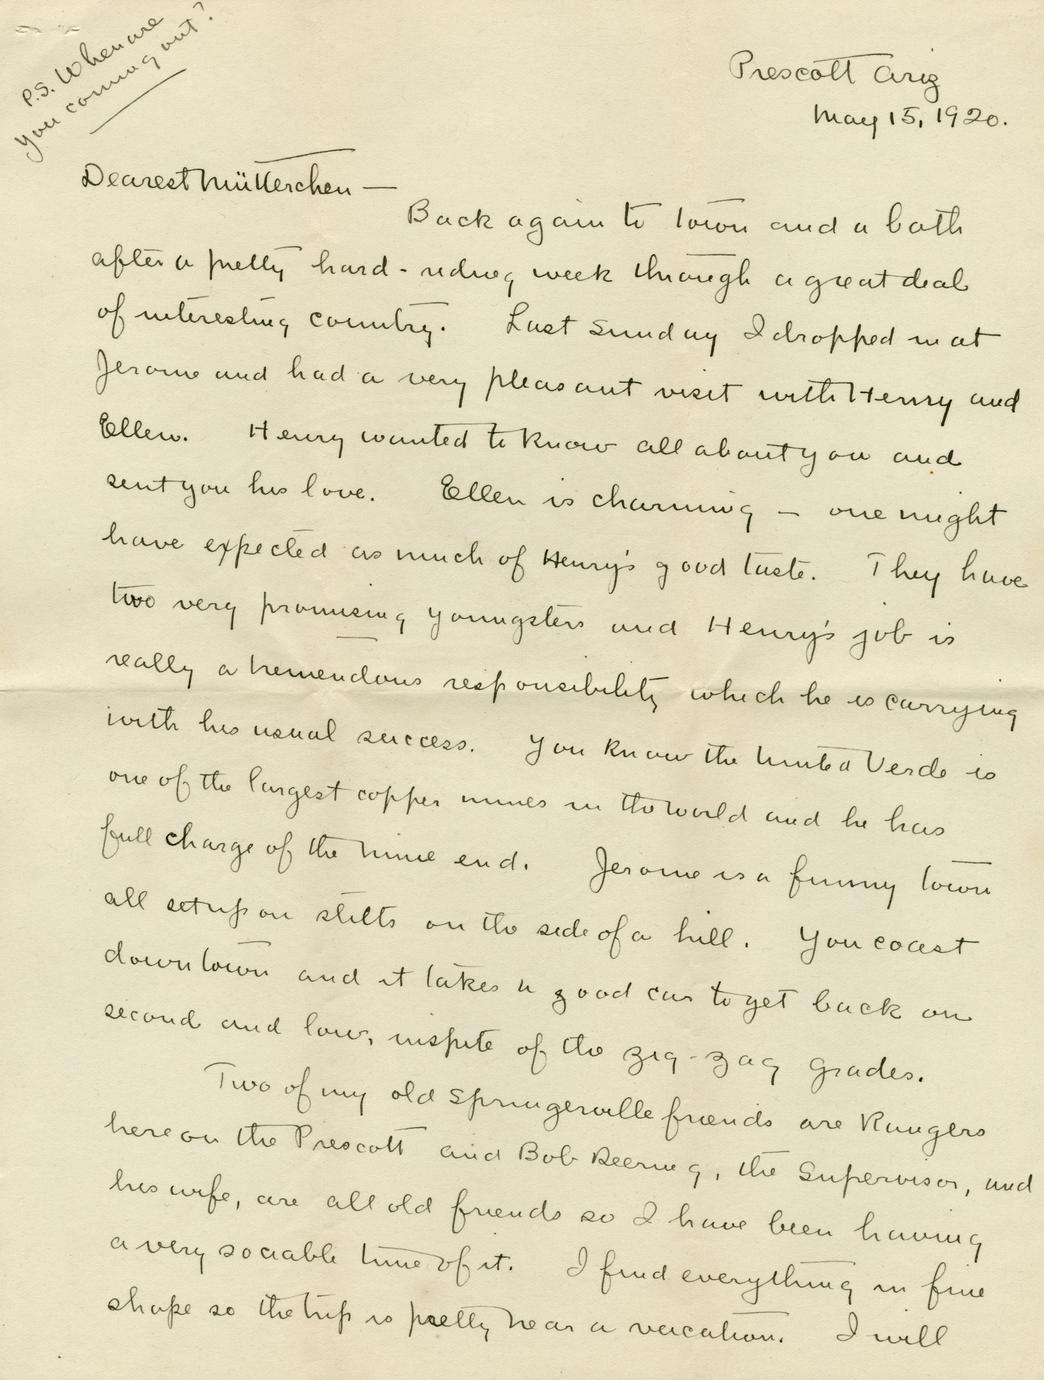 P.S. When are
you coming out?
Prescott Ariz
May 15, 1920.
Dearest Mütterchen —
Back again to town and a bath
after a pretty hard-riding week through a great deal
of interesting country. Last Sunday I dropped in at
Jerome and had a very pleasant visit with Henry and
Ellen. Henry wanted to know all about you and
sent you his love. Ellen is charming — one might
have expected as much of Henry's good taste. They have
two very promising youngsters and Henry's job is
really a tremendous responsibility which he is carrying
with his usual success. You know the United Verde is
one of the largest copper mines in the world and he has
full charge of the mine end. Jerome is a funny town
all set up on stilts on the side of a hill. You coast
down town and it takes a good car to get back on
second and low, inspite of the zig-zag grades.
Two of my old Springerville friends are Rangers
here on the Prescott and Bob Deering, the Supervisor, and
his wife, are all old friends so I have been having
a very sociable time of it. I find everything in fine
shape so the trip is pretty near a vacation. I will